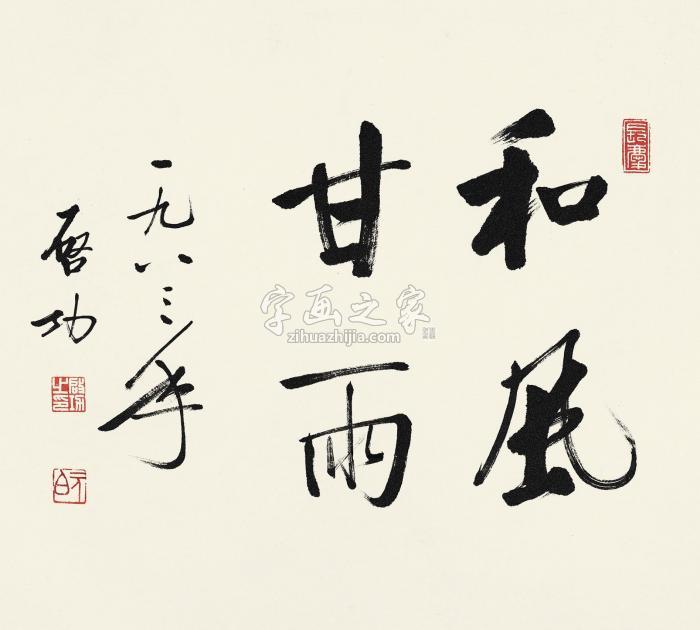 和風
甘雨
一九八三年
啓功
長慶
啓功之印
字画之家
zihuazhijia.com